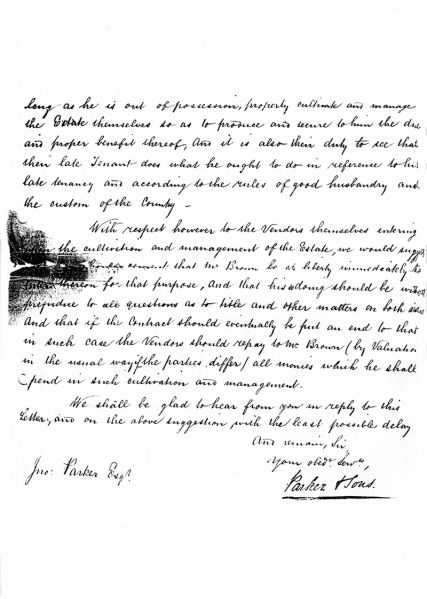 long as he is out of possession, properly cultivate and manage
the Estate themselves so as to produce and secure to him the due
and proper benefit thereof, And it is also their duty to see that
their late Tenant does what he ought to do in reference to his
late tenancy and according to the rules of good husbandry and
the custom of the County –
With respect however to the Vendors themselves entering
upon the cultivation and management of the Estate, we would suggest
consent that Mr Brown be at liberty immediately to
enter thereon for that purpose, and that his so doing should be without
prejudice to all questions as to title and other matters on both sides
And that if the Contract should eventually be put an end to that
in such case the Vendors should repay to Mr Brown (by Valuation
in the usual way if the parties differ) all monies which he shall
spend in such cultivation and management.
We shall be glad to hear from you in reply to this
Letter, and on the above suggestion with the least possible delay
And remain, Sir
Your obedt. Servts,
Parker & Sons.
Jno: Parker Esqr.